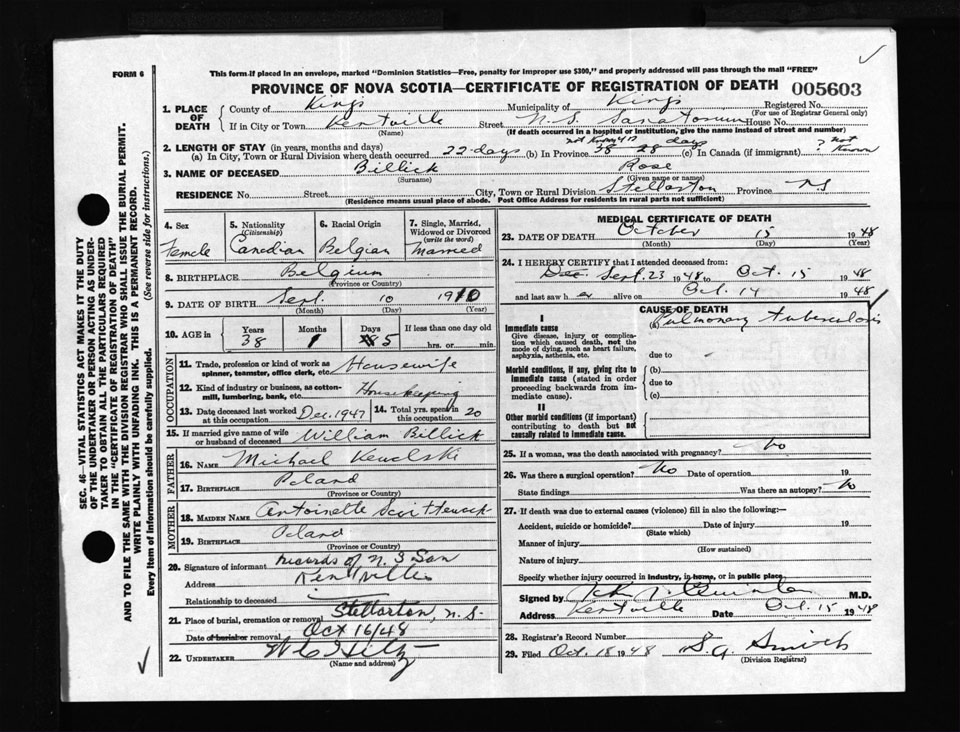 FORM 6
This form if placed in an envelope, marked "Dominion Statistics—Free, penalty for improper use $300," and properly addressed will pass through the mail "FREE"
PROVINCE OF NOVA SCOTIA—CERTIFICATE OF REGISTRATION OF DEATH 005603
1. PLACE OF DEATH County of Kings Municipality of Kings Registered No.
(For use of Registrar General only)
If in City or Town Kentville Street N.S. Sanatorium House No.
(Name) (If death occurred in a hospital or institution, give the name instead of street and number)
2. LENGTH OF STAY (in years, months and days) not known
(a) In City, Town or Rural Division where death occurred 22 days (b) In Province 38 28 days (c) In Canada (if immigrant) ? not known
3. NAME OF DECEASED Billick Rose
(Surname) (Given name or names)
RESIDENCE No. Street City, Town or Rural Division Stellarton Province NS
(Residence means usual place of abode. Post Office Address for residents in rural parts not sufficient)
4. Sex Female
5. Nationality (Citizenship) Canadian
6. Racial Origin Belgian
7. Single, Married, Widowed or Divorced (write the word) Married
8. BIRTHPLACE Belgium
(Province or Country)
9. DATE OF BIRTH Sept. 10 1910
(Month) (Day) (Year)
10. AGE in Years Months Days If less than one day old
38 1 5 hrs. or min.
OCCUPATION
11. Trade, profession or kind of work as spinner, teamster, office clerk, etc. Housewife
12. Kind of industry or business, as cotton-mill, lumbering, bank, etc. Housekeeping
13. Date deceased last worked at this occupation Dec. 1947 14. Total yrs. spent in this occupation 20
15. If married give name of wife or husband of deceased William Billick
FATHER
16. NAME Michael
17. BIRTHPLACE Poland
(Province or Country)
MOTHER
18. MAIDEN NAME Antoinette
19. BIRTHPLACE Poland
(Province or Country)
20. Signature of informant records of N.S San
Address Kentville
Relationship to deceased
21. Place of burial, cremation or removal Stellarton, N.S.
Date of burial or removal Oct 16/48
22. UNDERTAKER W C Hiltz
(Name and address)
MEDICAL CERTIFICATE OF DEATH
23. DATE OF DEATH October 15 1948
(Month) (Day) (Year)
24. I HEREBY CERTIFY that I attended deceased from:
Dec. Sept. 23 1948 to Oct. 15 1948
and last saw her alive on Oct. 14 1948
CAUSE OF DEATH
I
Immediate cause (a) Pulmonary tuberculosis
Give disease, injury or complication which caused death, not the mode of dying, such as heart failure, asphyxia, asthenia, etc.
due to
Morbid conditions, if any, giving rise to immediate cause (stated in order proceeding backwards from immediate cause).
(b)
due to
(c)
II
Other morbid conditions (if important) contributing to death but not causally related to immediate cause.
25. If a woman, was the death associated with pregnancy? No
26. Was there a surgical operation? No Date of operation 19
State findings Was there an autopsy? No
27. If death was due to external causes (violence) fill in also the following:—
Accident, suicide or homicide? Date of injury 19
(State which)
Manner of injury
(How sustained)
Nature of injury
Specify whether injury occurred in industry, in home, or in public place
Signed by M.D.
Address Kentville Date Oct. 15 1948
28. Registrar's Record Number
29. Filed Oct. 18 1948 S.A. Smith
(Division Registrar)
SEC. 46—VITAL STATISTICS ACT MAKES IT THE DUTY
OF THE UNDERTAKER OR PERSON ACTING AS UNDER-
TAKER TO OBTAIN ALL THE PARTICULARS REQUIRED
IN THE "CERTIFICATE OF REGISTRATION OF DEATH"
AND TO FILE THE SAME WITH THE DIVISION REGISTRAR WHO SHALL ISSUE THE BURIAL PERMIT.
WRITE PLAINLY WITH UNFADING INK. THIS IS A PERMANENT RECORD.
Every item of Information should be carefully supplied. (See reverse side for instructions.)